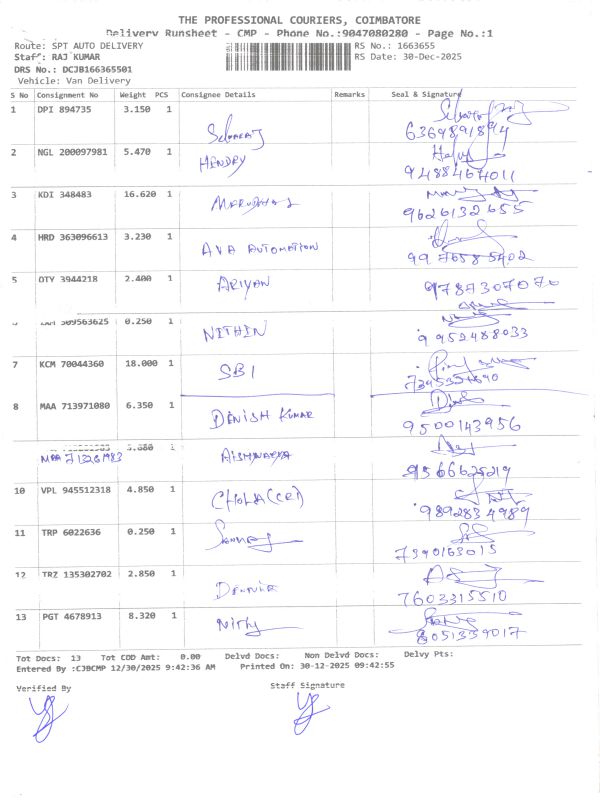 THE PROFESSIONAL COURIERS, COIMBATORE
Delivery Runsheet - CMP - Phone No.:9047080280 - Page No.:1
Route: SPT AUTO DELIVERY RS No.: 1663655
Staff: RAJ KUMAR RS Date: 30-Dec-2025
DRS No.: DCJB166365501
Vehicle: Van Delivery
S No Consignment No Weight PCS Consignee Details Remarks Seal & Signature
1 DPI 894735 3.150 1
6369891894
2 NGL 200097981 5.470 1 HENDRY
9488467011
3 KDI 348483 16.620 1
9626132655
4 HRD 363096613 3.230 1 AVA AUTOMATION
9976585402
5 OTY 3944218 2.400 1 ARIYAN 9787307070
309563625 0.250 1 NITHIN
9952488033
7 KCM 70044360 18.000 1 SBI
8 MAA 713971080 6.350 1 DENISH KUMAR
9500143956
1 AISHWARYA
9566625219
10 VPL 945512318 4.850 1 CHOLA(CRI)
9892834989
11 TRP 6022636 0.250 1
7390163015
12 TRZ 135302702 2.850 1
7603315510
13 PGT 4678913 8.320 1
8051339017
Tot Docs: 13 Tot COD Amt: 0.00 Delvd Docs: Non Delvd Docs: Delvy Pts:
Entered By :CJBCMP 12/30/2025 9:42:36 AM Printed On: 30-12-2025 09:42:55
Verified By Staff Signature